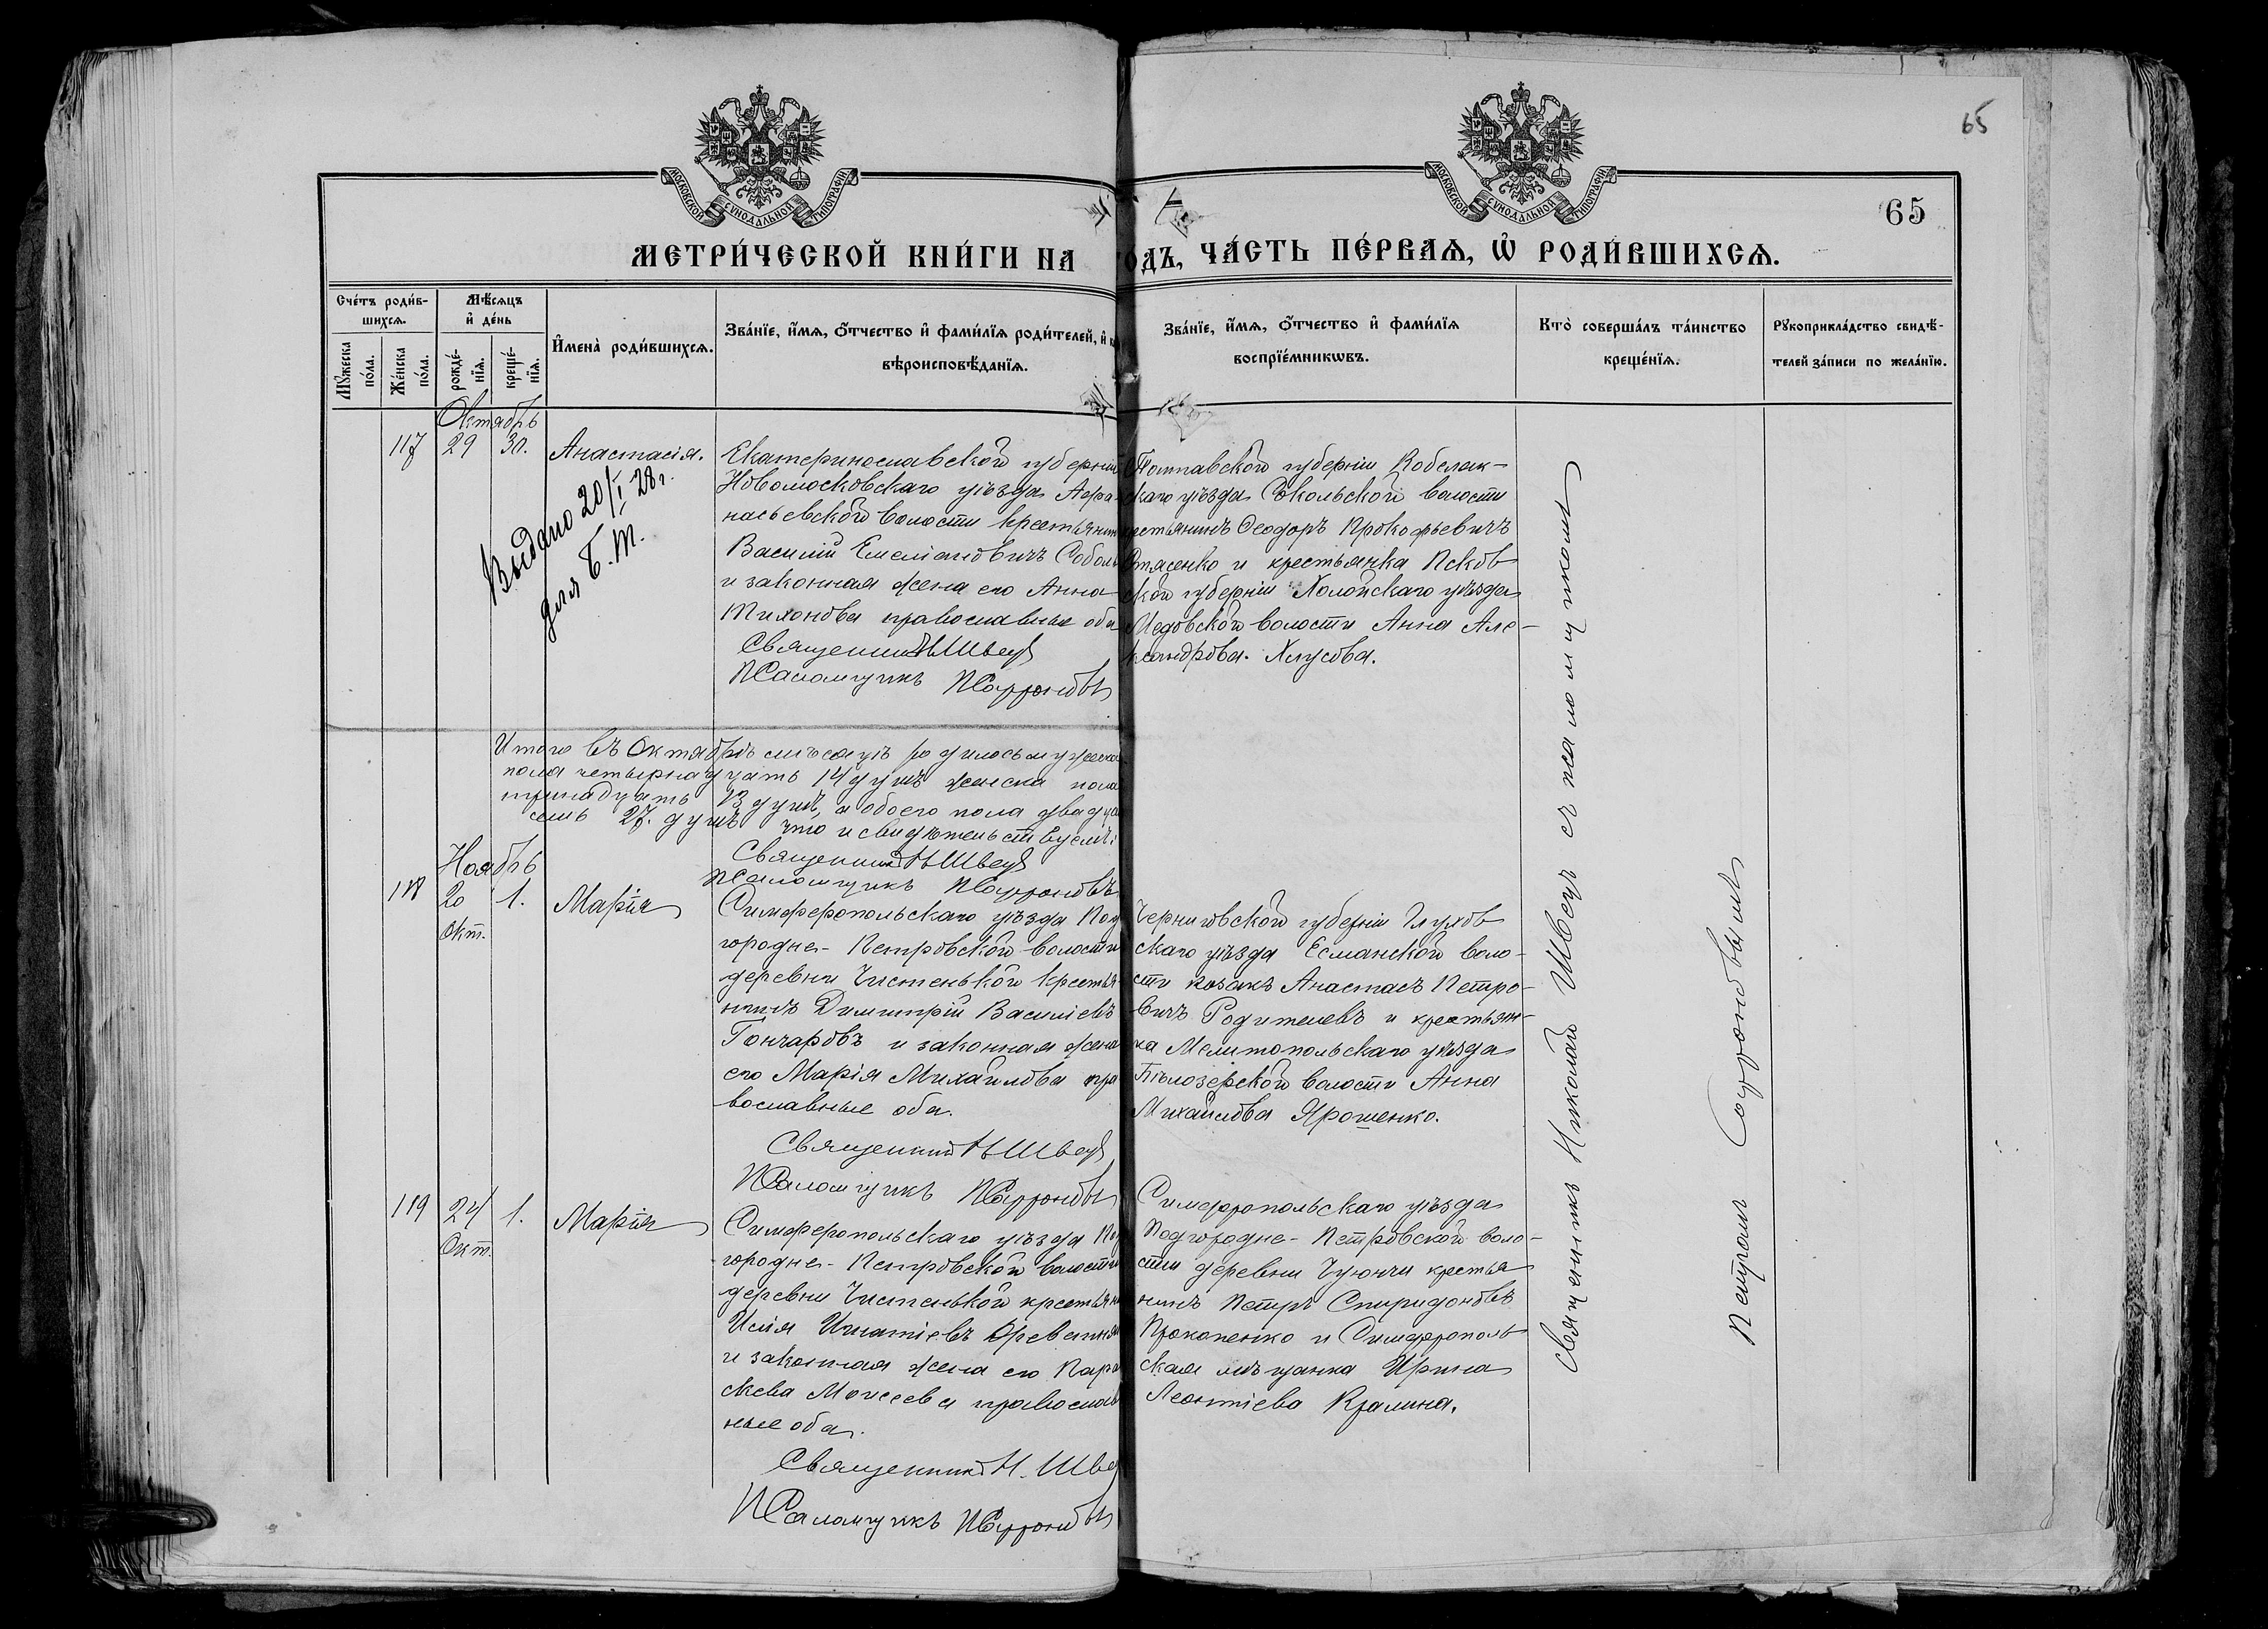 65
МОСКОВСКОЙ СѴНОДАЛЬНОЙ ТИПОГРАФІИ
МОСКОВСКОЙ СѴНОДАЛЬНОЙ ТИПОГРАФІИ
65
МЕТРИ́ЧЕСКОЙ КНИ́ГИ НА
ОДЪ, ЧА́СТЬ ПЕ́РВАѦ, Ѡ҆ РОДИ́ВШИХСѦ.
Сче́тъ роди́в-
шихсѧ.
Мѹ́жеска по́ла.
Же́нска по́ла.
Мѣ́сѧцъ
и҆ де́нь
рожде́-нїѧ.
креще́-нїѧ.
И҆мена̀ роди́вшихсѧ.
Зва́нїе, и҆́мѧ, ѻ҆́тчество и҆ фами́лїѧ роди́телей, и҆
вѣроисповѣ́данїѧ.
Зва́нїе, и҆́мѧ, ѻ҆́тчество и҆ фами́лїѧ
воспрїе́мникѡвъ.
Кто̀ соверша́лъ та́инство
креще́нїѧ.
Рꙋкоприкла́дство свидѣ́-
телей за́писи по жела́нїю.
Октябрь
117 29 30. Анастасія.
Выдано 20/I 28 г.
для Б. М.
Екатеринославской губерніи
Новомосковскаго уѣзда Афа-
насьевской волости крестьянинъ
Василій Емеліановичъ Соболь
и законная жена его Анна
Тихонова православные оба
Священникъ Н Швецъ
Псаломщикъ П Софроновъ
Полтавской губерніи Кобеляк-
скаго уѣзда Сокольской волости
крестьянинъ Ѳеодоръ Прокофьевичъ
Стасенко и крестьянка Псков-
ской губерніи Холмскаго уѣзда
Медовской волости Анна Але-
ксандрова Хлусова.
Итого въ Октябрѣ мѣсяцѣ родилось мужеска
пола четырнадцать 14 душъ женска пола
тринадцать 13 душъ, а обоего пола двадца
семь 27. душъ что и свидѣтельствуемъ:
Священникъ Н Швецъ
Псаломщикъ П Софроновъ
Ноябрь
118 20 1. Марія
Окт.
Симферопольскаго уѣзда Под
городне-Петровской волости
деревни Чистенькой крестья
нинъ Димитрій Василіевъ
Гончаровъ и законная жена
его Марія Михайлова пра
вославные оба.
Священникъ Н Швецъ
Псаломщикъ П Софроновъ
Черниговской губерніи Глухов
скаго уѣзда Есманской воло-
сти козакъ Анастасъ Петро-
вичъ Родителевъ и крестьян-
ка Мелитопольскаго уѣзда
Бѣлозерской волости Анна
Михайлова Ярошенко.
119 24 1. Марія
Окт.
Симферопольскаго уѣзда Под
городне-Петровской волости
деревни Чистенькой крестьянинъ
Илія Игнатіевъ
и законная жена его Пара
скева Моисеева православ
ные оба.
Священникъ Н. Швецъ
Псаломщикъ П Софроновъ
Симферопольскаго уѣзда
Подгородне-Петровской воло-
сти деревни крестья
нинъ Петръ Спиридоновъ
Прокопенко и Симферополь
ская мѣщанка Ирина
Леонтіева Кралина.
Священникъ Николай Швецъ съ псаломщикомъ
Петромъ Софроновымъ